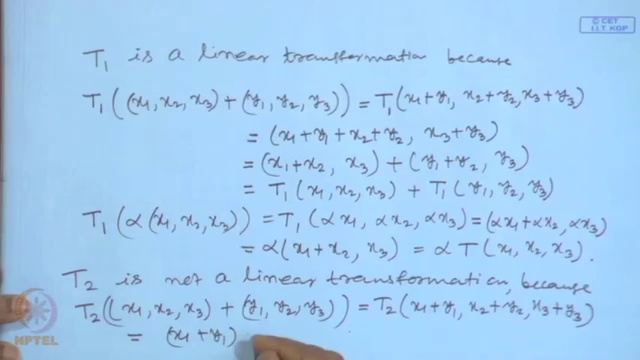 © CET
I.I.T. KGP
T₁ is a linear transformation because
T₁((x₁, x₂, x₃) + (y₁, y₂, y₃)) = T₁(x₁+y₁, x₂+y₂, x₃+y₃)
= (x₁+y₁+x₂+y₂, x₃+y₃)
= (x₁+x₂, x₃) + (y₁+y₂, y₃)
= T₁(x₁, x₂, x₃) + T₁(y₁, y₂, y₃)
T₁(α(x₁, x₂, x₃)) = T₁(αx₁, αx₂, αx₃) = (αx₁+αx₂, αx₃)
= α(x₁+x₂, x₃) = αT(x₁, x₂, x₃).
T₂ is not a linear transformation, because
T₂((x₁, x₂, x₃) + (y₁, y₂, y₃)) = T₂(x₁+y₁, x₂+y₂, x₃+y₃)
= (x₁+y₁)
NPTEL